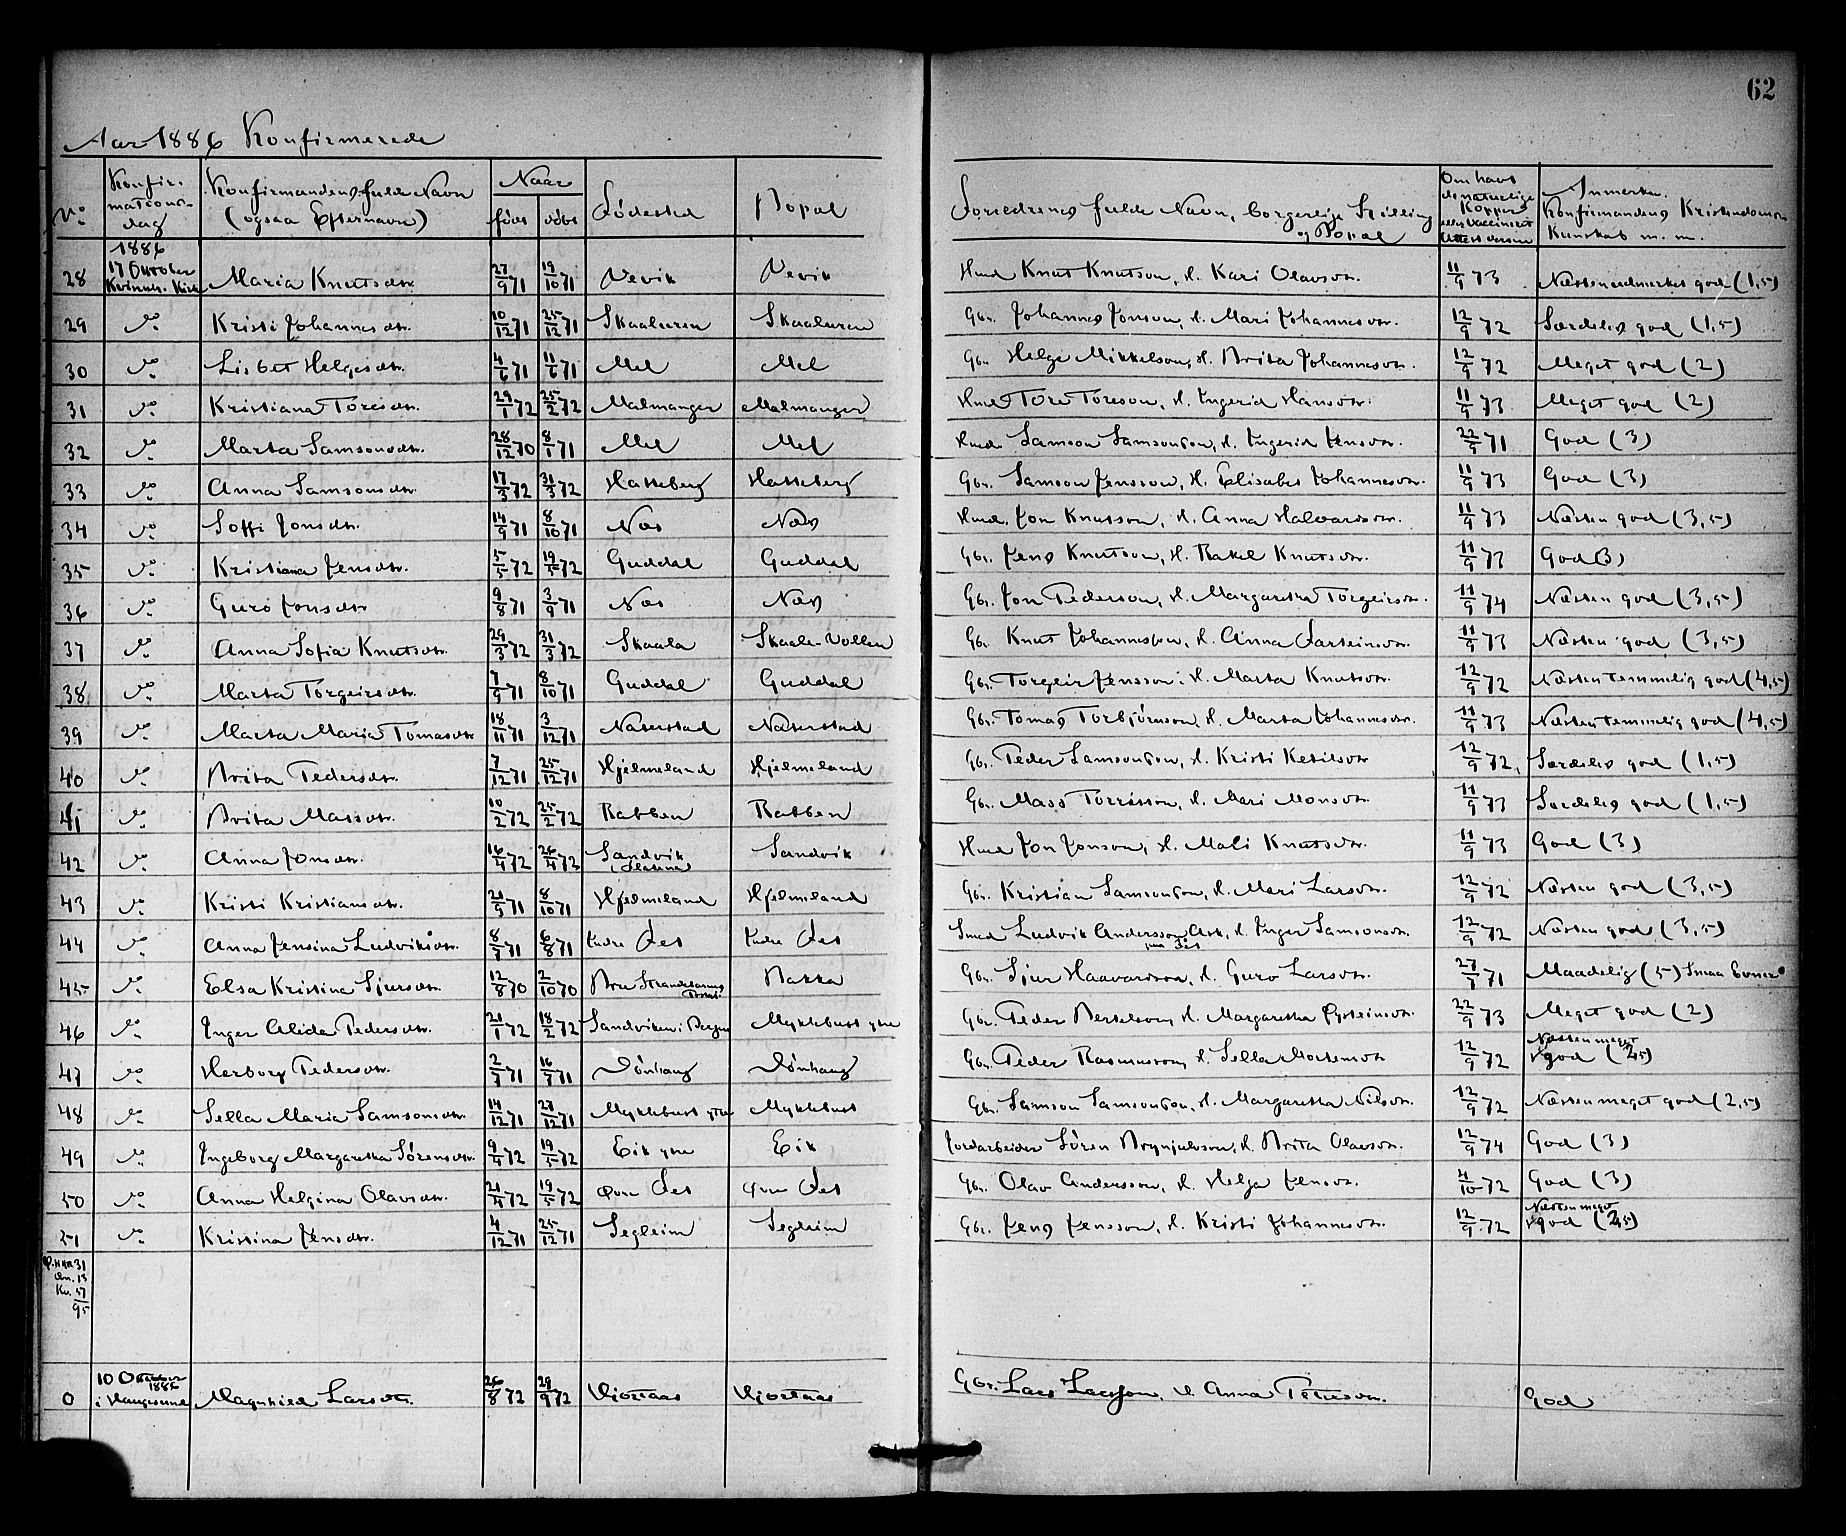 62
Aar 1886 Konfirmerede
No Konfirmationsdag Konfirmandens fulde Navn (ogsaa Efternavn) Naar født døbt Fødested Bopæl Forældrenes fulde Navn, borgerlige Stilling og Bopæl Om havt de naturlige Kopper eller vaccineret Attest derom Anmerkn. Konfirmandens Kristendoms Kunskab m. m.
28 1886 17 Oktober Kvinnh. Kirk Maria Knutsdtr. 27/9 71 19/10 71 Nevik Nevik Hmd Knut Knutson, H. Kari Olavsdtr. 11/9 73 Næsten udmerket god (1,5)
29 do Kristi Johannesdtr. 10/12 71 25/12 71 Skaaluren Skaaluren Gbr. Johannes Jonson, H. Mari Johannesdtr. 12/9 72 Særdeles god (1,5)
30 do Lisbet Helgesdtr. 4/6 71 11/6 71 Mel Mel Gbr. Helge Mikkelson, H. Brita Johannesdtr. 12/9 72 Meget god (2)
31 do Kristiana Toresdtr. 29/1 72 25/2 72 Malmanger Malmanger Hmd Tore Toreson, H. Ingerid Hansdtr. 11/9 73 Meget god (2)
32 do Marta Samsonsdtr. 28/12 70 8/1 71 Mel Mel Hmd. Samson Samsonson, H. Ingerid Jensdtr. 22/9 71 God (3)
33 do Anna Samsonsdtr. 17/3 72 31/3 72 Hatteberg Hatteberg Gbr. Samson Jensson, H. Elisabet Johannesdtr. 11/9 73 God (3)
34 do Soffi Jonsdtr. 14/9 71 8/10 71 Nes Nes Hmd. Jon Knutsson, H. Anna Halvardsdtr. 11/9 73 Næsten god (3,5)
35 do Kristiana Jensdtr. 5/5 72 19/5 72 Guddal Guddal Gbr. Jens Knutson, H. Rakel Knutsdtr. 11/9 73 God (3)
36 do Guro Jonsdtr 9/8 71 3/9 71 Nes Nes Gbr. Jon Pederson, H. Margaretha Torgeirsdtr. 11/9 74 Næsten god (3,5)
37 do Anna Sofia Knutsdtr. 29/3 72 31/3 72 Skaala Skaala-Vollen Gbr. Knut Johannesson, H. Anna 11/9 73 Næsten god (3,5)
38 do Marta Torgeirsdtr. 7/9 71 8/10 71 Guddal Guddal Gbr. Torgeir Jensson, H. Marta Knutsdtr. 12/9 72 Næsten temmelig god (4,5)
39 do Marta Maria Tomasdtr 18/11 71 3/12 71 Næterstad Næterstad Gbr. Tomas Torbjørnson, H. Marta Johannesdtr. 11/9 73 Næsten temmelig god (4,5)
40 do Brita Pedersdtr. 7/12 71 25/12 71 Hjelmeland Hjelmeland Gbr. Peder Samsonson, H. Kristi Ketilsdtr 12/9 72, Særdeles god (1,5)
41 do Brita Massdtr. 10/2 72 25/2 72 Rabben Rabben Gbr. Mass Torrisson, H. Mari Monsdtr. 11/9 73 Særdeles god (1,5)
42 do Anna Jonsdtr. 16/4 72 26/4 72 Sandvik Sandvik Hmd Jon Jonson, H. Mali Knutsdtr. 11/9 73 God (3)
43 do Kristi Kristiansdtr. 20/9 71 8/10 71 Hjelmeland Hjelmeland Gbr. Kristian Samsonson, H. Mari Larsdtr. 12/9 72 Næsten god (3,5)
44 do Anna Jensina Ludviksdtr. 8/7 71 6/8 71 Indre Øes Indre Øes Smed Ludvik Andersson H. Inger Samsonsdtr. 12/9 72 Næsten god (3,5)
45 do Elsa Kristina Sjursdtr. 12/8 70 2/10 70 Bakka Gbr. Sjur Haavardson, H. Guro Larsdtr. 27/9 71 Maadelig (5) Smaa Evner
46 do Inger Alida Pedersdtr. 21/1 72 18/2 72 Sandviken i Bergen Myklebust ytre Gbr. Peder Bertelson, H. Margaretha Øysteinsdtr 22/9 73 Meget god (2)
47 do Herborg Pedersdtr. 2/7 71 16/7 71 Dønhaug Dønhaug Gbr. Peder Rasmusson, H. Sella Mortensdtr 12/9 72 Næsten meget god (2,5)
48 do Sella Maria Samsonsdtr. 14/12 71 27/12 71 Myklebust ytre Myklebust Gbr. Samson Samsonson, H. Margaretha Nilsdtr. 12/9 72 Næsten meget god (2,5)
49 do Ingeborg Margaretha Sørensdtr. 9/4 72 19/5 72 Eik ytre Eik Jordarbeider Søren Brynjulvson, H. Brita Olavsdtr. 12/9 74 God (3)
50 do Anna Helgina Olavsdtr. 21/4 72 19/5 72 Øvre Øes Øvre Øes Gbr. Olav Andersson, H. Helga Jensdtr. 4/10 72 God (3)
51 do Kristina Jensdtr. 4/12 71 25/12 71 Segleim Segleim Gbr. Jens Jensson, H. Kristi Johannesdtr. 12/9 72 Næsten meget god (2,5)
31
An. 13
Kv. 51
95
0 10 Oktober 1886 i Haugesund Magnhild Larsdtr. 26/8 72 29/9 72 Gbr. Lars Larsson, H. Anna Petersdtr. God